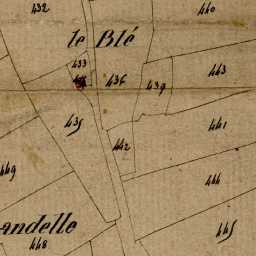 432
440
le Blé
433
436
439
443
435
442
441
449
444
andelle
448
445